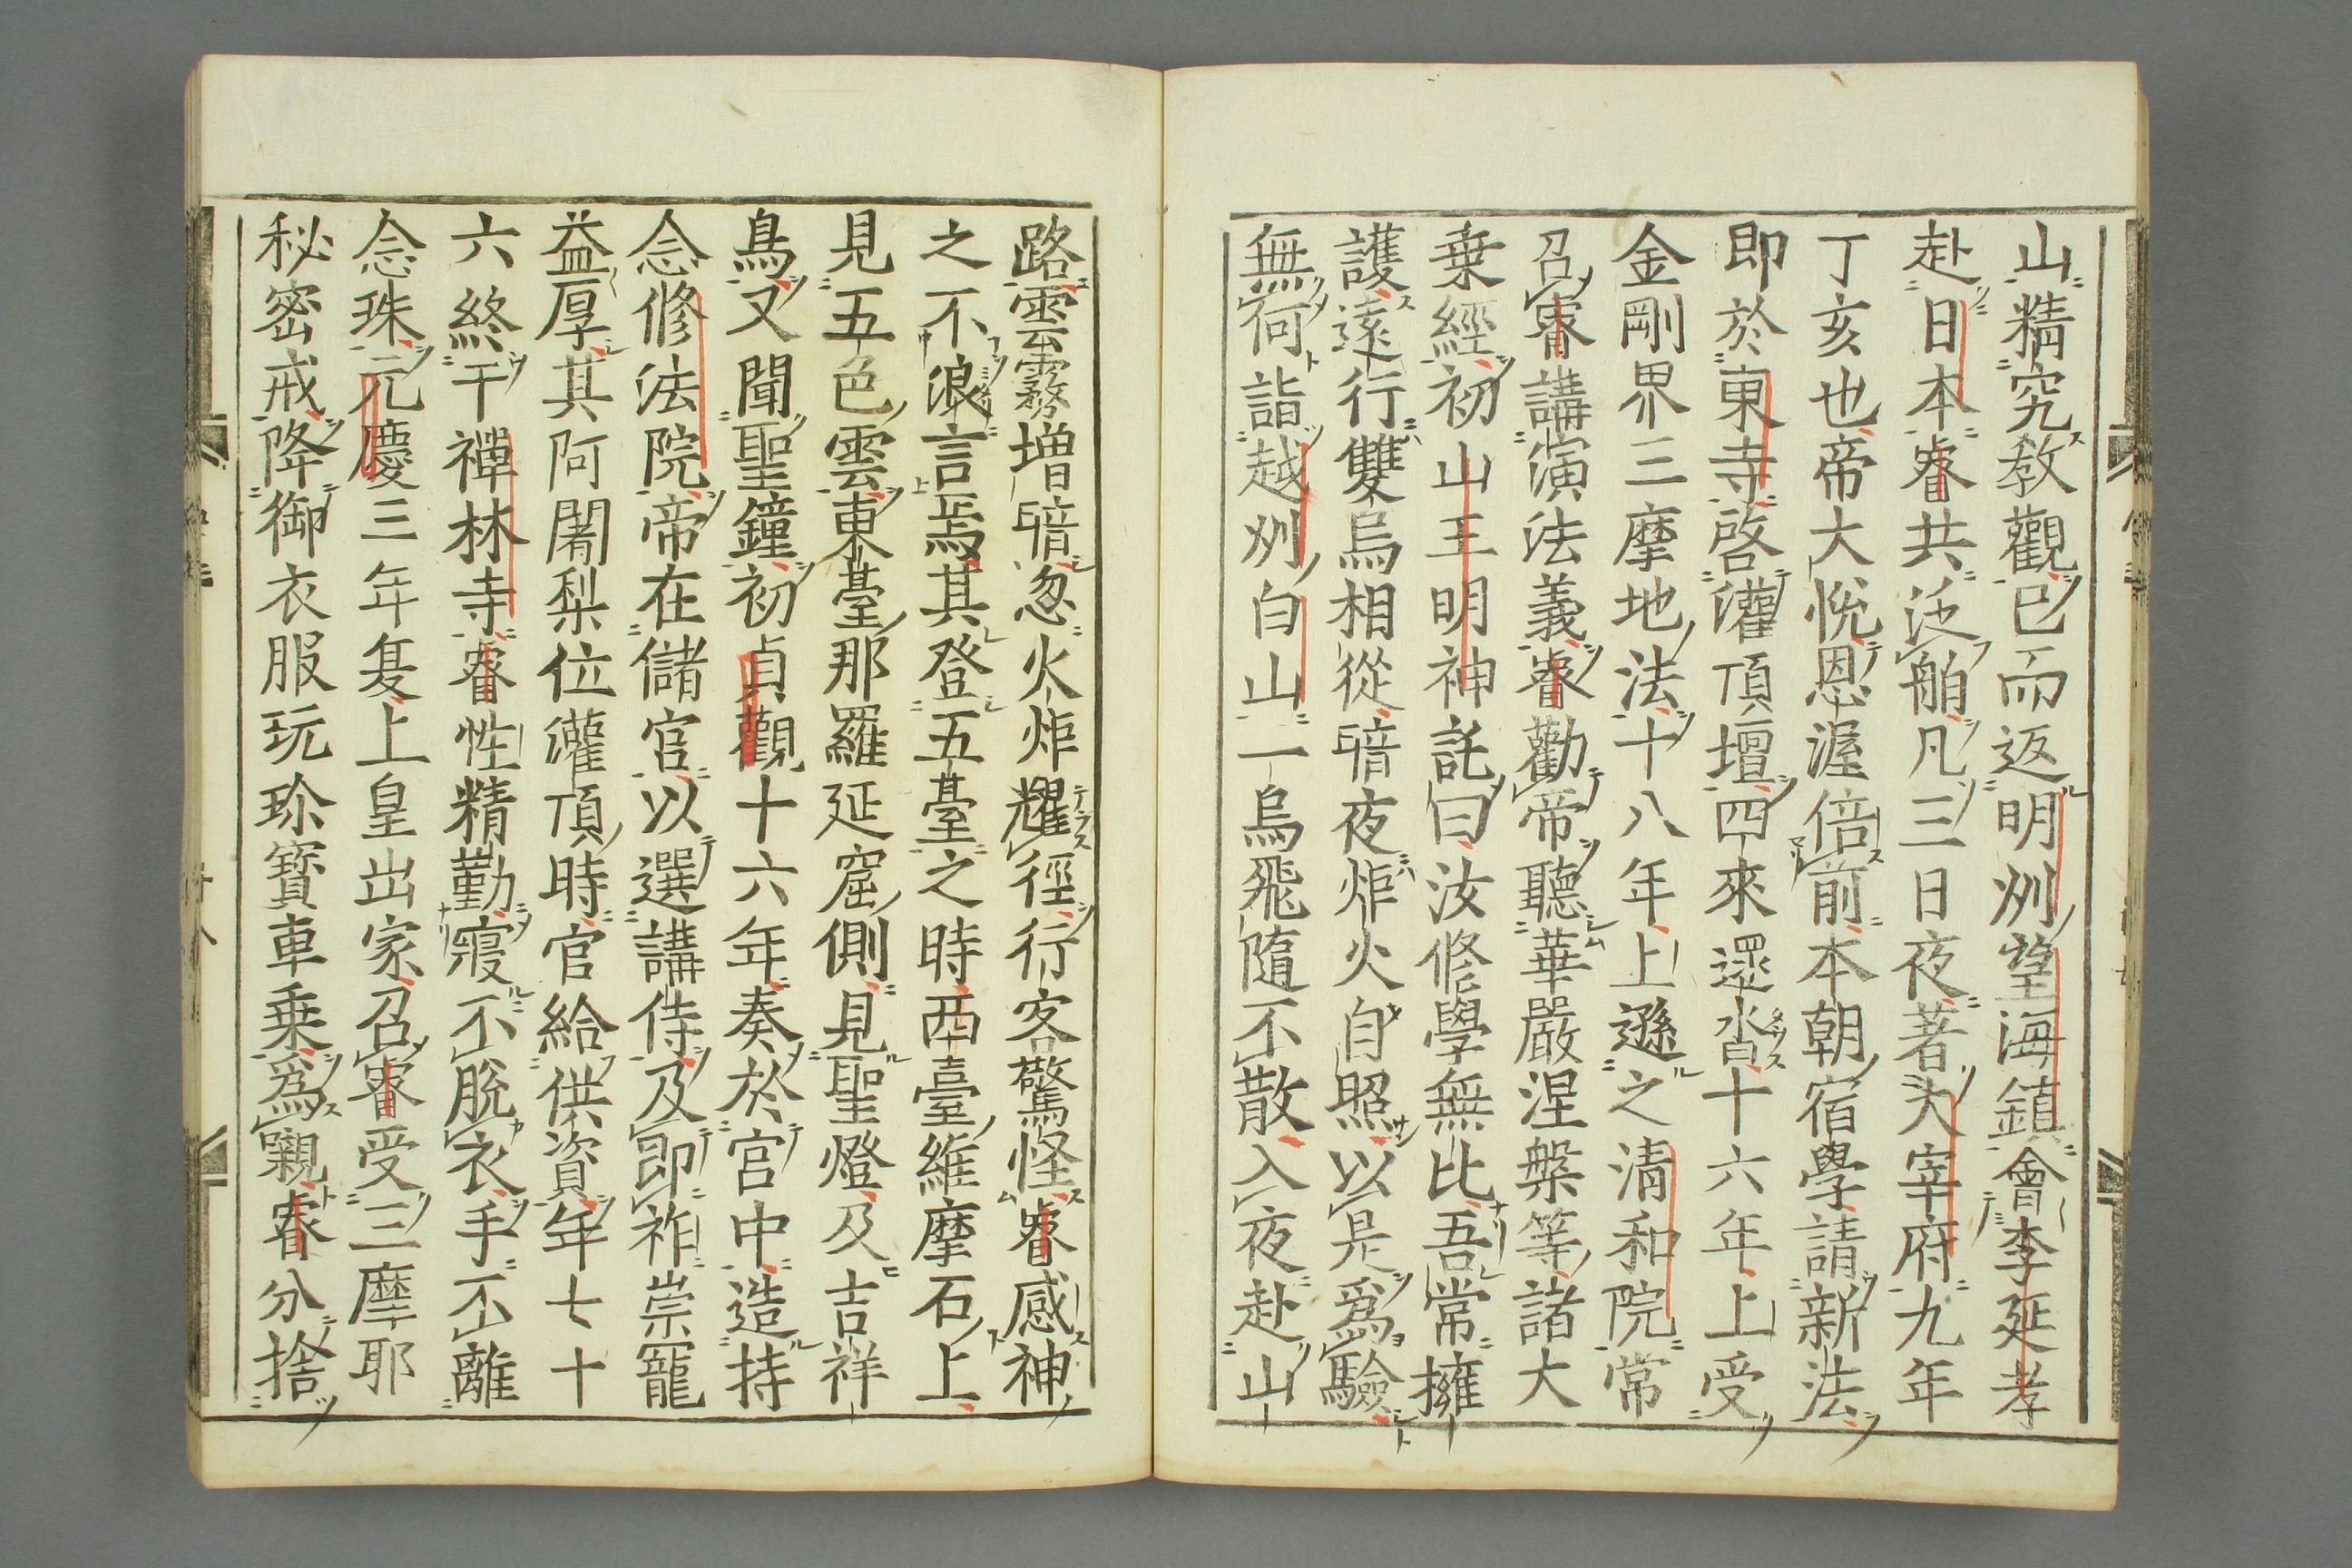 山精究教觀已而返明州望海鎮會李延孝
赴日本睿共泛舶凡三日夜著大宰府九年
丁亥也帝大悅恩渥倍前本朝宿學請新法
即於東寺啓灌頂壇四來還沓十六年上受
金剛界三摩地法十八年上遜之清和院常
召睿講演法義睿勸帝聽華嚴涅槃等諸大
乗經初山王明神託曰汝修學無比吾常擁
護遠行雙烏相從暗夜炬火自照以是爲驗
無何詣越州白山一烏飛隨不散入夜赴山
路雲霧増暗忽火炬耀徑行客驚怪睿感神
之不浪言焉其登五臺之時西臺維摩石上
見五色雲東臺那羅延窟側見聖燈及吉祥
鳥又聞聖鐘初貞觀十六年奏於宮中造持
念修法院帝在儲宮以選講侍及即祚崇寵
益厚其阿闍梨位灌頂時官給供資年七十
六終于禪林寺睿性精勤寢不脫衣手不離
念珠元慶三年夏上皇出家召睿受三摩耶
秘密戒降御衣服玩珍寳車乗爲親睿分捨